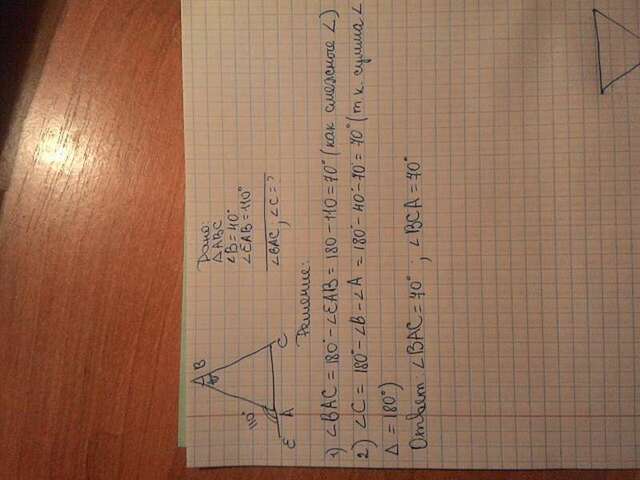 B
110°
E A C
Дано:
△ABC
∠B = 40°
∠EAB = 110°
∠BAC, ∠C = ?
Решение:
1) ∠BAC = 180° - ∠EAB = 180 - 110 = 70° (как смежные ∠)
2) ∠C = 180° - ∠B - ∠A = 180° - 40° - 70° = 70° (т.к. сумма ∠
△ = 180°)
Ответ: ∠BAC = 70° ; ∠BCA = 70°